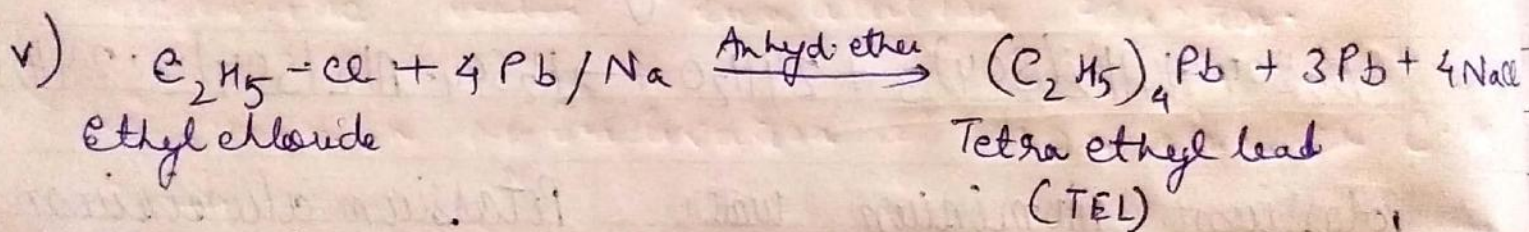 v) C₂H₅-Cl + 4 Pb/Na Anhyd. ether → (C₂H₅)₄Pb + 3Pb + 4NaCl
Ethyl chloride Tetra ethyl lead
(TEL)